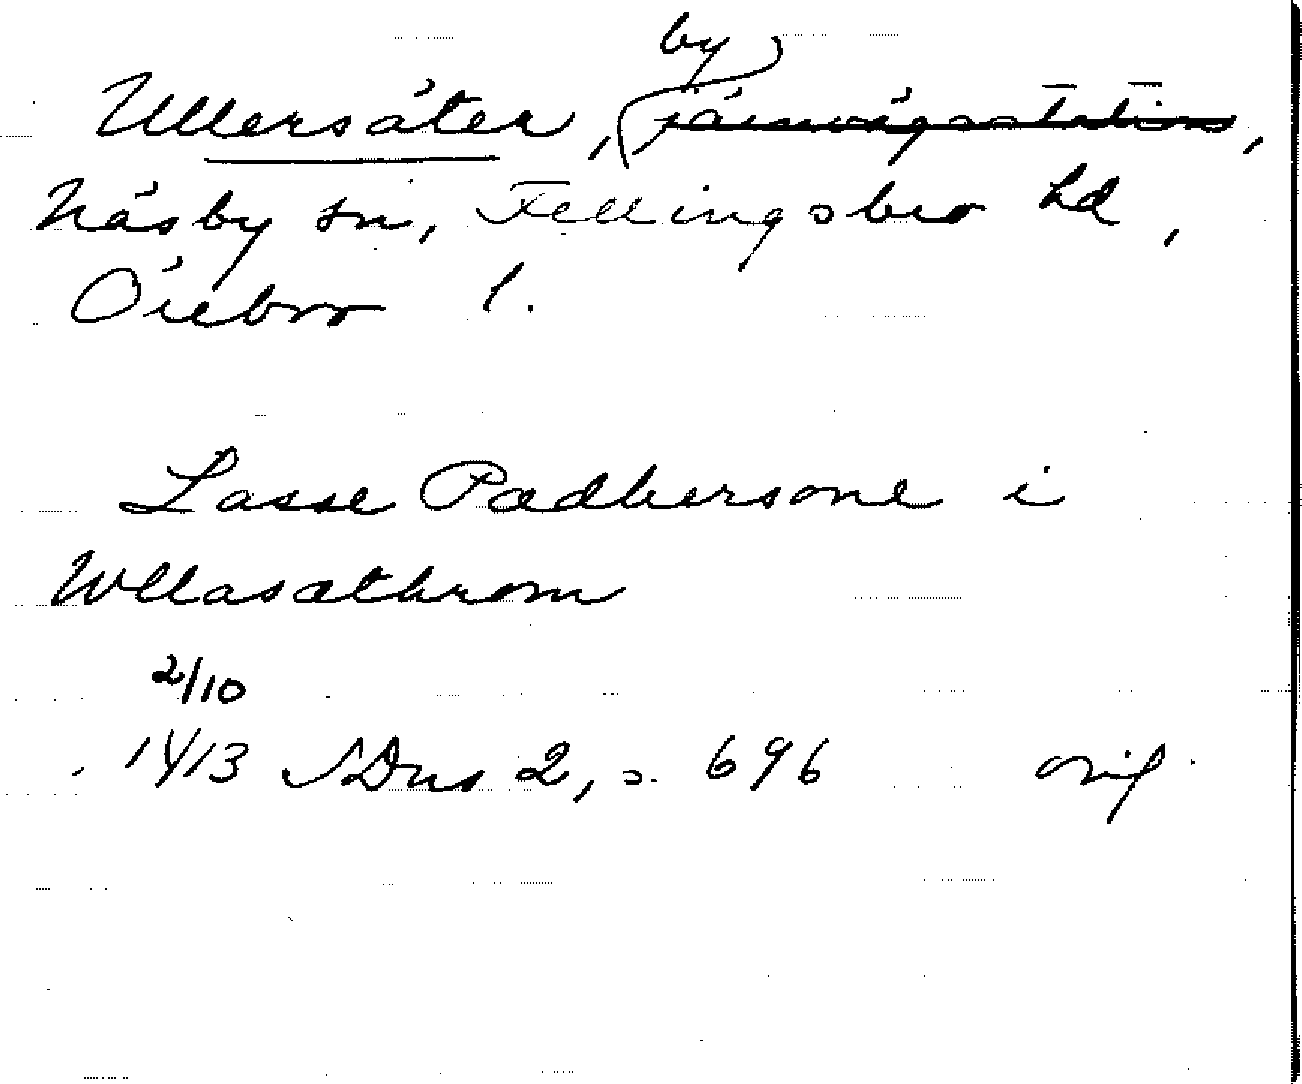 by
Ullersäter, järnvägsstation,
Näsby sn, Fellingsbro hd,
Örebro l.
Lasse Padhersone i
Wllasathrom
2/10
1413 SDns 2, s. 696 orig.